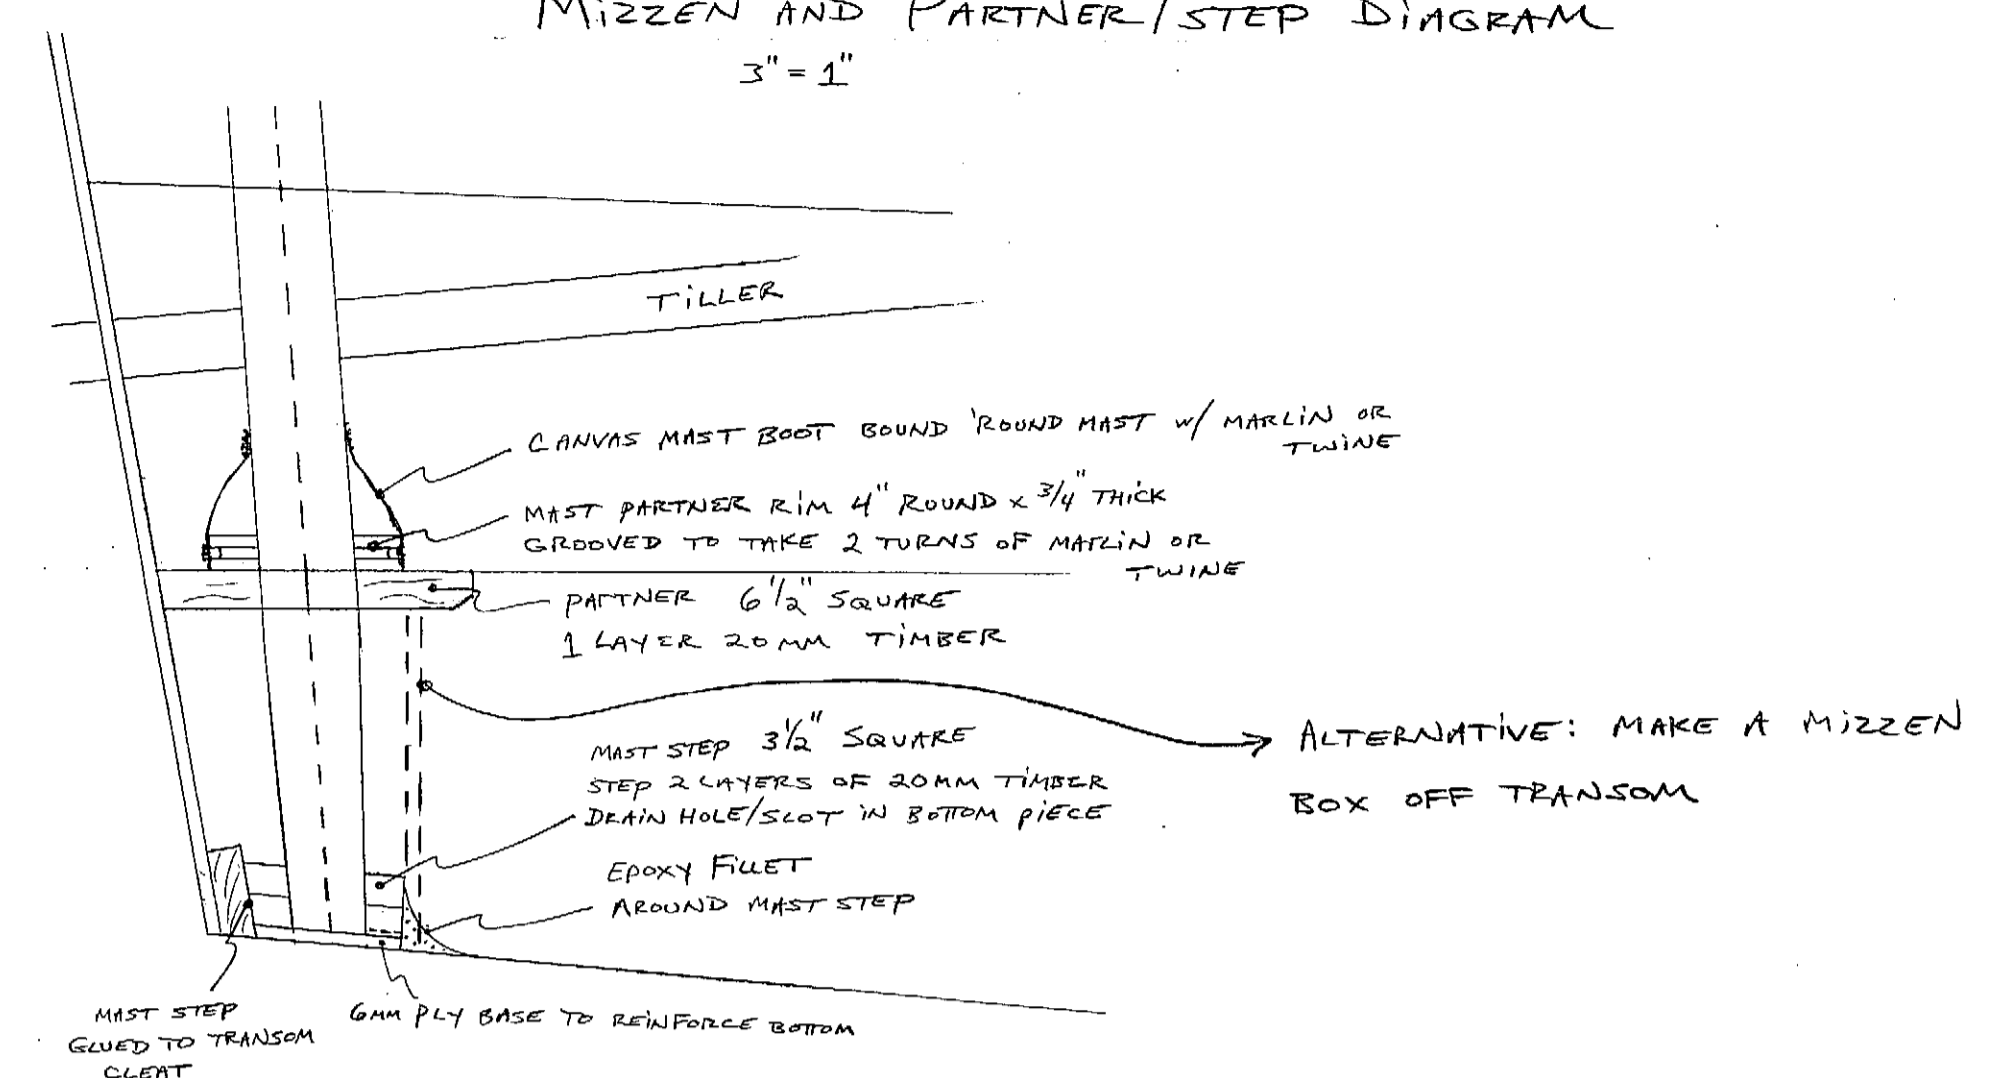 MIZZEN AND PARTNER/STEP DIAGRAM
3" = 1"
TILLER
CANVAS MAST BOOT BOUND 'ROUND MAST w/ MARLIN OR
TWINE
MAST PARTNER RIM 4" ROUND x 3/4" THICK
GROOVED TO TAKE 2 TURNS OF MARLIN OR
TWINE
PARTNER 6 1/2" SQUARE
1 LAYER 20MM TIMBER
ALTERNATIVE: MAKE A MIZZEN
BOX OFF TRANSOM
MAST STEP 3 1/2" SQUARE
STEP 2 LAYERS OF 20MM TIMBER
DRAIN HOLE/SLOT IN BOTTOM PIECE
EPOXY FILLET
AROUND MAST STEP
MAST STEP
GLUED TO TRANSOM
CLEAT
6MM PLY BASE TO REINFORCE BOTTOM